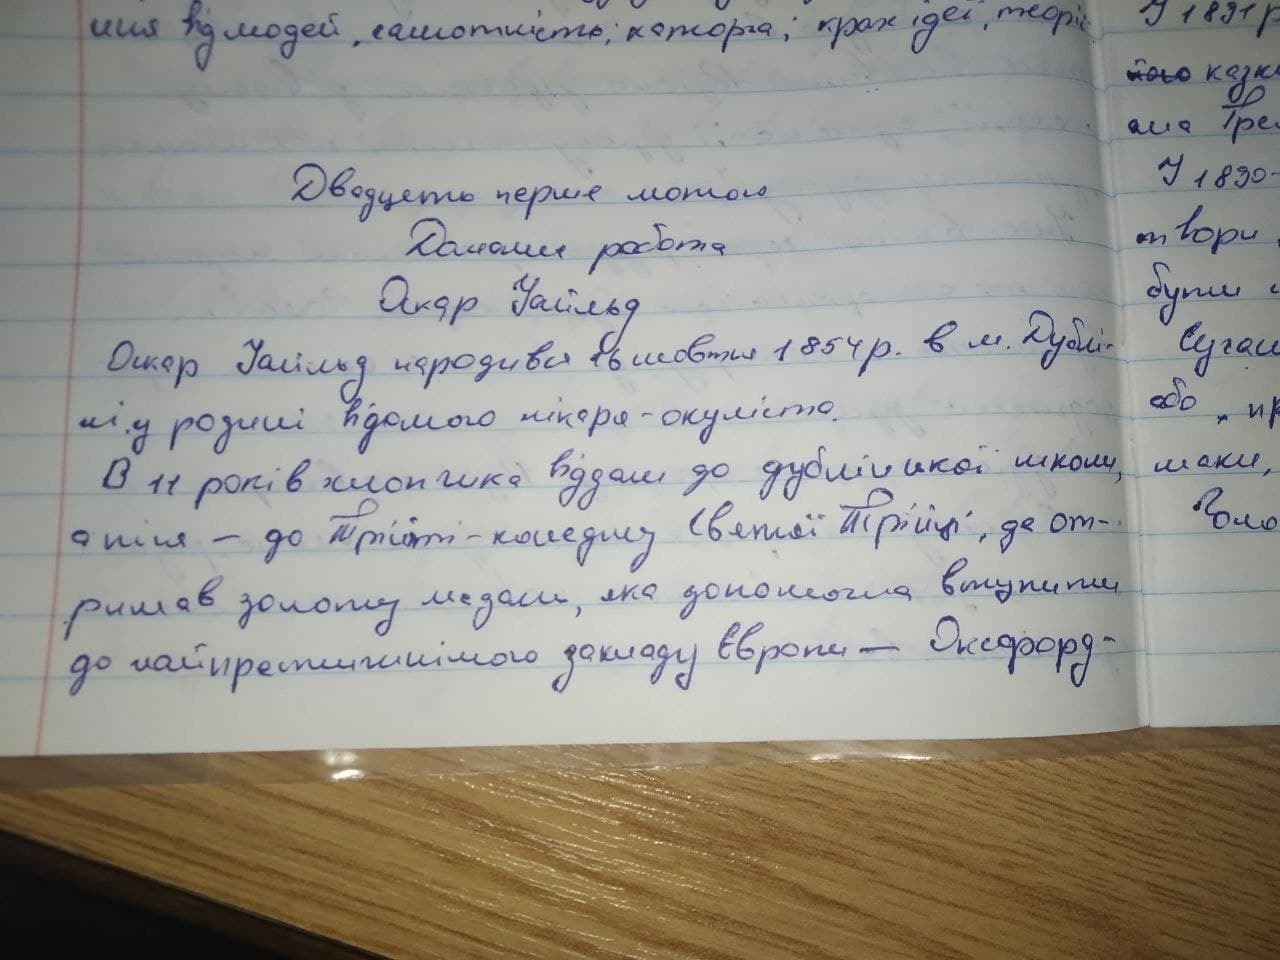 ння від людей, самотність; каторга; крах ідеї, теорії
Двадцять перше лютого
Домашня робота
Оскар Уайльд
Оскар Уайльд народився 16 жовтня 1854 р. в м. Дублі-
ні, у родині відомого лікаря-окуліста.
В 11 років хлопчика віддали до дублінської школи,
а після – до Трініті-коледжу Святої Трійці, де от-
римав золоту медаль, яка допомогла вступити
до найпрестижнішого закладу Європи – Оксфорд-
У 1891 р
його казк
ама Гре
У 1890-
твори
бути
Сучас
або, пр
маки,
Голо